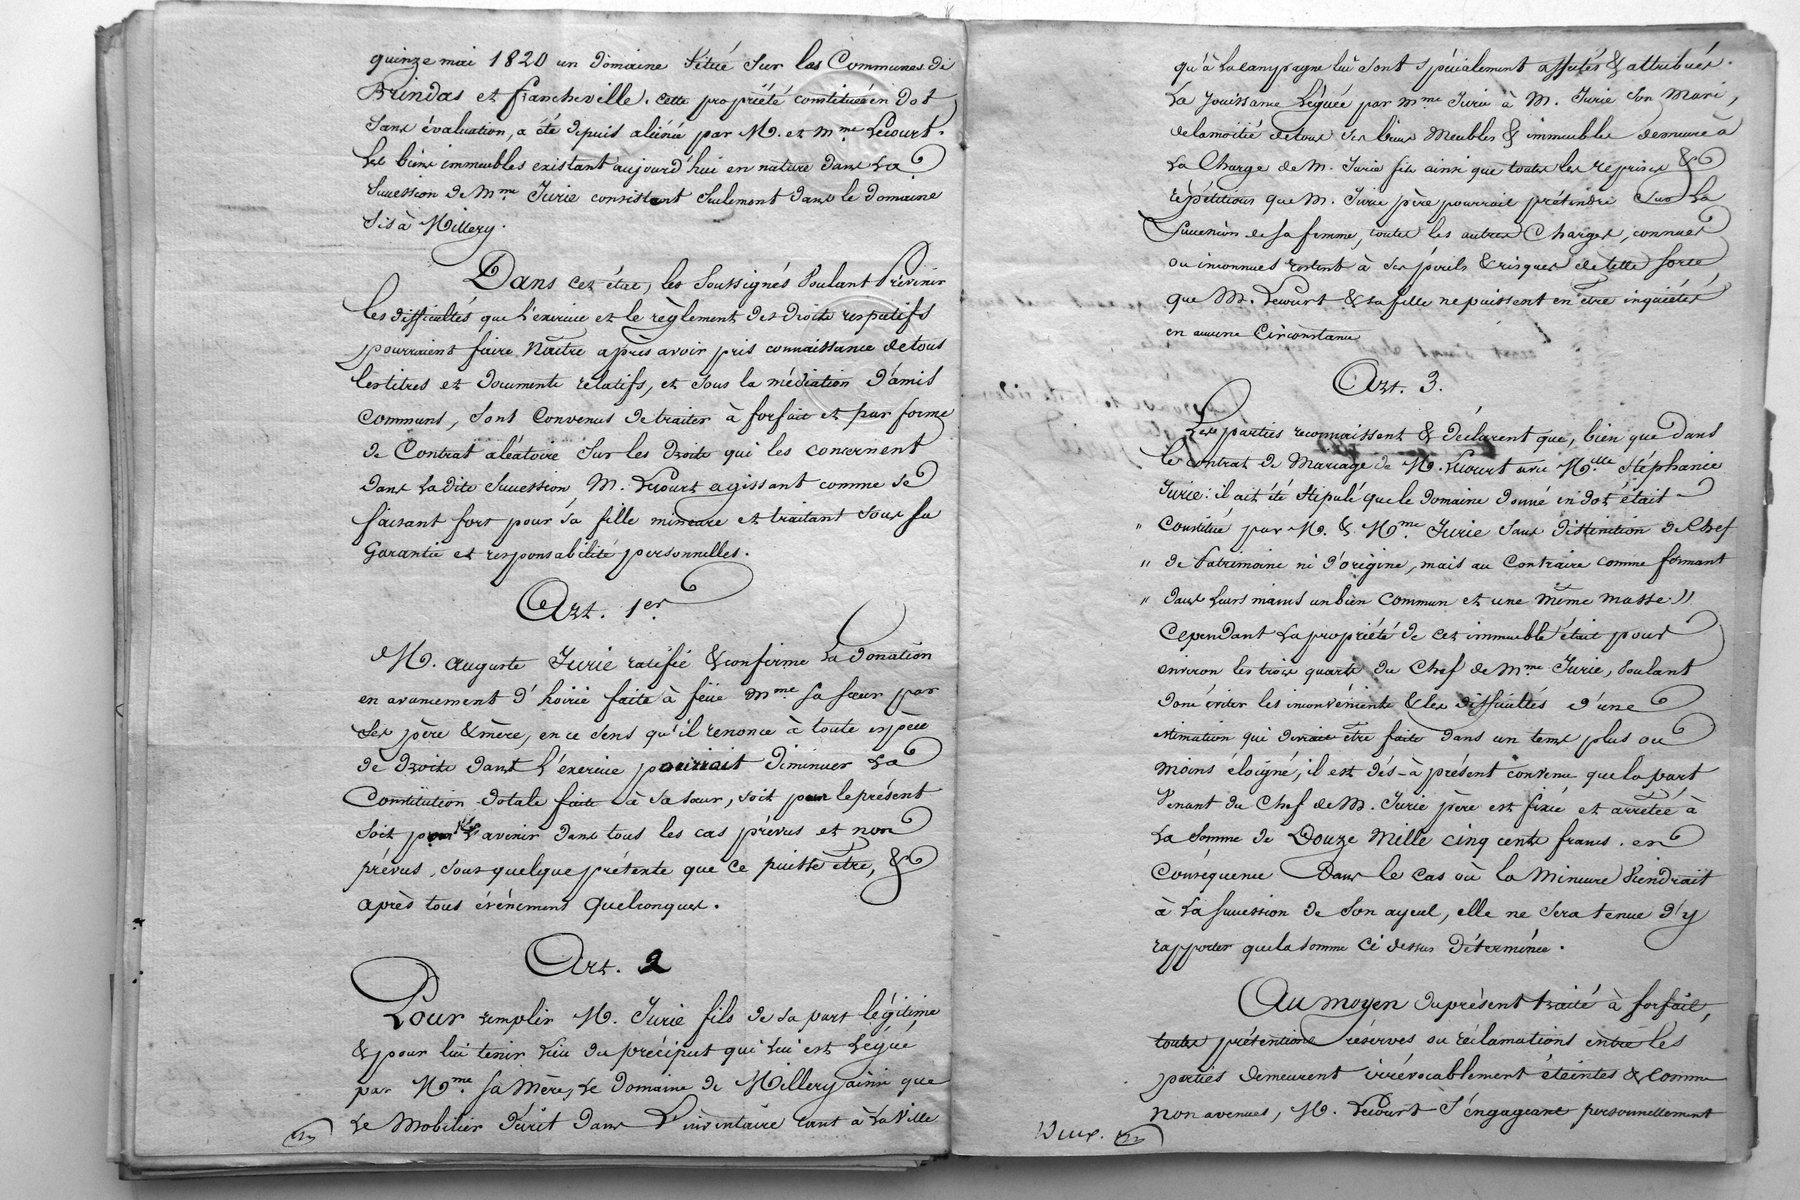 quinze mai 1820 un domaine situé sur les Communes de
Brindas et francheville. cette propriété constituée en dot
sans évaluation, a été depuis aliénée par M. et Mme Lecourt.
Les biens immeubles existant aujourd'hui en nature dans la
Succession de Mme Jurie consistent seulement dans le domaine
sis à Millery.
Dans cet état, les Soussignés Voulant Prévenir
les difficultés que l'exercice et le règlement des droits respectifs
pourraient faire Naître après avoir pris connaissance de tous
les titres et documents relatifs, et sous la médiation d'amis
communs, sont convenus de traiter à forfait et par forme
de Contrat aléatoire sur les droits qui les concernent
dans la dite Succession, M. Lecourt agissant comme se
faisant fort pour sa fille mineure et traitant sous sa
Garantie et responsabilité personnelles.
Art. 1er.
M. auguste Jurie ratifie & confirme la donation
en avancement d'hoirie faite à feüe Mme sa sœur par
ses père & mère, en ce sens qu'il renonce à toute espèce
de droits dont l'exercice pourrait diminuer la
Constitution dotale faite à sa sœur, soit pour le présent
soit pour l'avenir dans tous les cas prévus et non
prévus, sous quelque prétexte que ce puisse être, &
après tous événements quelconques.
Art. 2
Pour remplir M. Jurie fils de sa part légitime
& pour lui tenir lieu du préciput qui lui est légué
par Mme sa mère, le domaine de Millery ainsi que
le Mobilier décrit dans l'inventaire tant à la ville
qu'à la campagne lui sont spécialement affectés & attribués.
La jouissance léguée par Mme Jurie à M. Jurie son Mari,
de la moitié de tous ses biens Meubles & immeubles demeure à
la Charge de M. Jurie fils ainsi que toutes les reprises &
répétitions que M. Jurie père pourrait prétendre sur la
Succession de sa femme, toutes les autres Charges, connues
ou inconnues restent à ses périls & risques de telle sorte
que M. Lecourt & sa fille ne puissent en être inquiétés
en aucune Circonstance
Art. 3.
Les parties reconnaissent & déclarent que, bien que dans
le contrat de Mariage de M. Lecourt avec Melle Stéphanie
Jurie: il ait été stipulé que le domaine donné en dot était
" constitué par M. & Mme Jurie sans distinction de Chef
" de Patrimoine ni d'origine, mais au contraire comme formant
" dans leurs mains un bien commun et une même masse "
Cependant la propriété de cet immeuble était pour
environ les trois quarts du Chef de Mme Jurie, Voulant
donc éviter les inconvénients & les difficultés d'une
estimation qui devrait être faite dans un tems plus ou
moins éloigné, il est dés-à présent convenu que la part
Venant du Chef de M. Jurie père est fixée et arrêtée à
la somme de Douze Mille cinq cents francs. en
conséquence Dans le cas où la Mineure Viendrait
à la succession de son ayeul, elle ne sera tenue d'y
rapporter que la somme ci dessus déterminée.
Au moyen du présent traité à forfait,
toutes prétentions réserves ou réclamations entre les
parties demeurent irrévocablement éteintes & comme
non avenues, M. Lecourt s'engageant personnellement